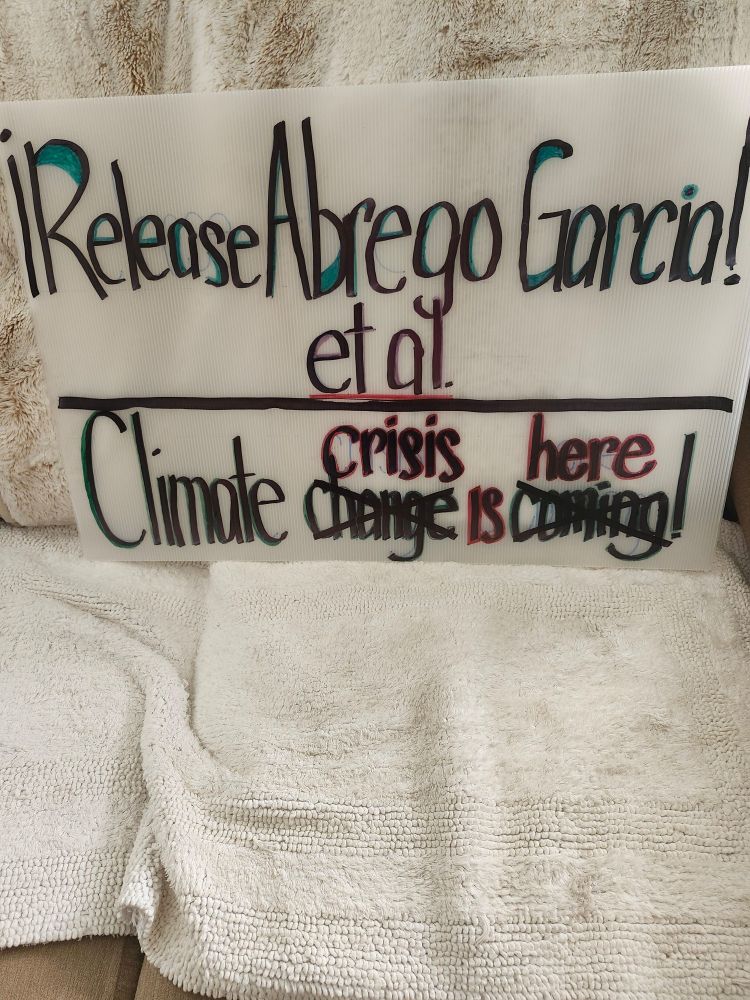 ¡Release Abrego Garcia!
et al.
crisis here
Climate change is coming!